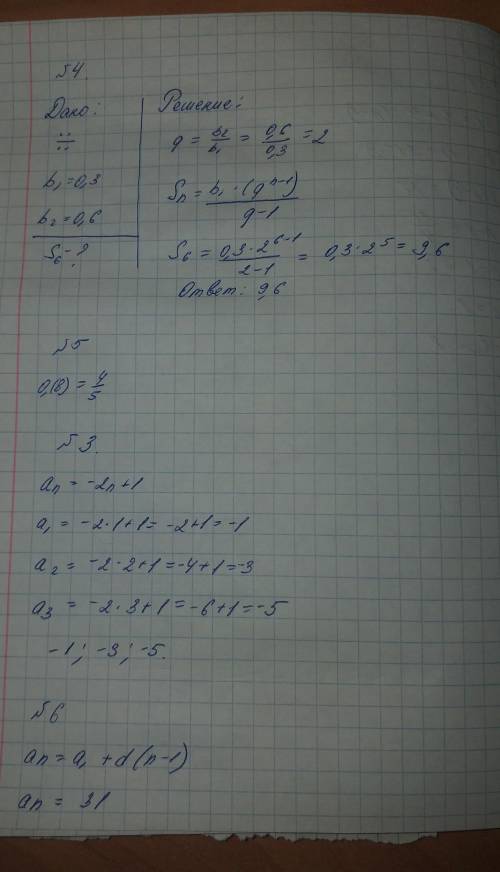 №4.
Дано:
∺
b₁ = 0,3
b₂ = 0,6
S₆ - ?
Решение:
q = b₂/b₁ = 0,6/0,3 = 2
Sₙ = b₁ · (qⁿ⁻¹)/q-1
S₆ = 0,3 · 2⁶⁻¹/2-1 = 0,3 · 2⁵ = 9,6
Ответ: 9,6
№5
0,(8) = 4/5
№3.
aₙ = -2n+1
a₁ = -2·1+1 = -2+1 = -1
a₂ = -2·2+1 = -4+1 = -3
a₃ = -2·3+1 = -6+1 = -5
-1; -3; -5.
№6
aₙ = a₁ + d(n-1)
aₙ = 31